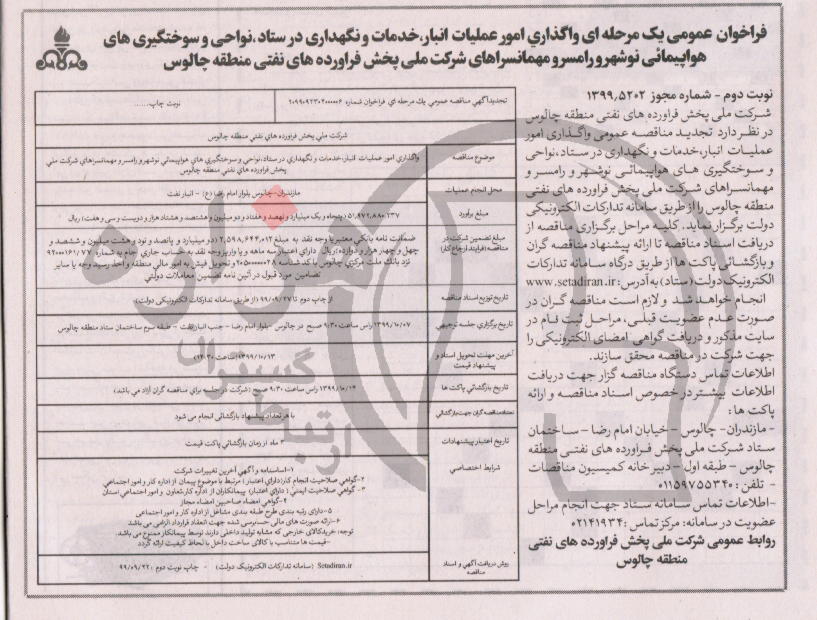 فراخوان عمومی یک مرحله ای واگذاری امور عملیات انبار،خدمات و نگهداری در ستاد،نواحی و سوختگیری های
هواپیمائی نوشهر و رامسر و مهمانسراهای شرکت ملی پخش فرآورده های نفتی منطقه چالوس
نوبت دوم - شماره مجوز ۱۳۹۹٫۵۲۰۲
شرکت ملی پخش فرآورده های نفتی منطقه چالوس
در نظر دارد تجدید مناقصه عمومی واگذاری امور
عملیات انبار،خدمات و نگهداری در ستاد،نواحی
و سوختگیری های هواپیمائی نوشهر و رامسر و
مهمانسراهای شرکت ملی پخش فرآورده های نفتی
منطقه چالوس را از طریق سامانه تدارکات الکترونیکی
دولت برگزار نماید. کلیه مراحل برگزاری مناقصه از
دریافت اسناد مناقصه تا ارائه پیشنهاد مناقصه گران
و بازگشائی پاکت ها از طریق درگاه سامانه تدارکات
الکترونیک دولت (ستاد) به آدرس: www.setadiran.ir
انجام خواهد شد و لازم است مناقصه گران در
صورت عدم عضویت قبلی، مراحل ثبت نام در
سایت مذکور و دریافت گواهی امضای الکترونیکی را
جهت شرکت در مناقصه محقق سازند.
اطلاعات تماس دستگاه مناقصه گزار جهت دریافت
اطلاعات بیشتر در خصوص اسناد مناقصه و ارائه
پاکت ها:
- مازندران- چالوس - خیابان امام رضا - ساختمان
ستاد شرکت ملی پخش فرآورده های نفتی منطقه
چالوس - طبقه اول - دبیرخانه کمیسیون مناقصات
- تلفن: ۰۱۱۵۹۷۵۵۳۴۰
-اطلاعات تماس سامانه ستاد جهت انجام مراحل
عضویت در سامانه: مرکز تماس: ۰۲۱۴۱۹۳۴
روابط عمومی شرکت ملی پخش فرآورده های نفتی
منطقه چالوس
تجدیدآگهی مناقصه عمومی یک مرحله ای فراخوان شماره ۲۰۹۹۰۹۲۳۰۴۰۰۰۰۰۶
نوبت چاپ......
شرکت ملی پخش فرآورده های نفتی منطقه چالوس
موضوع مناقصه
واگذاری امور عملیات انبار،خدمات و نگهداری در ستاد،نواحی و سوختگیری های هواپیمائی نوشهر و رامسر و مهمانسراهای شرکت ملی
پخش فرآورده های نفتی منطقه چالوس
محل انجام عملیات
مازندران-چالوس بلوار امام رضا (ع) - انبار نفت
مبلغ برآورد
۵۱,۹۷۲,۸۸۰,۲۳۷ (پنجاه و یک میلیارد و نهصد و هفتاد و دو میلیون و هشتصد و هشتاد هزار و دویست و سی و هفت) ریال
مبلغ تضمین شرکت در
مناقصه (فرآیند ارجاع کار)
ضمانت نامه بانکی معتبر یا وجه نقد به مبلغ ۲,۵۹۸,۶۴۴,۰۱۲ (دو میلیارد و پانصد و نود و هشت میلیون و ششصد و
چهل و چهار هزار و دوازده) ریال دارای اعتبار سه ماهه و یا واریز وجه نقد به حساب جاری جام به شماره
نزد بانک ملت مرکزی چالوس با کد شناسه و تحویل فیش به امور مالی منطقه و اخذ رسید وجه یا سایر
تضامین مورد قبول در آئین نامه تضمین معاملات دولتی
تاریخ توزیع اسناد مناقصه
از چاپ دوم تا ۹۹/۰۹/۲۷ (از طریق سامانه تدارکات الکترونیکی دولت)
تاریخ برگزاری جلسه توجیهی
۱۳۹۹/۱۰/۰۷ راس ساعت ۹:۳۰ صبح در چالوس - بلوار امام رضا - جنب انبار نفت - طبقه سوم ساختمان ستاد منطقه چالوس
آخرین مهلت تحویل اسناد و
پیشنهاد قیمت
۱۳۹۹/۱۰/۱۳ (ساعت ۱۴:۳۰)
تاریخ بازگشائی پاکت ها
۱۳۹۹/۱۰/۱۴ راس ساعت ۹:۳۰ صبح (شرکت در جلسه برای مناقصه گران آزاد می باشد)
تعداد مناقصه گران جهت بازگشائی
با هر تعداد پیشنهاد بازگشائی انجام می شود
تاریخ اعتبار پیشنهادات
۳ ماه از زمان بازگشائی پاکت قیمت
شرایط اختصاصی
۱-اساسنامه و آگهی آخرین تغییرات شرکت
۲-گواهی صلاحیت انجام کار: دارای اعتبار؛ مرتبط با موضوع پیمان از اداره کار و امور اجتماعی
۳- گواهی صلاحیت ایمنی؛ دارای اعتبار؛ پیمانکاران از اداره کار،تعاون و امور اجتماعی استان
۴-گواهی امضاء صاحبین امضاء مجاز
۵-دارای رتبه بندی طرح طبقه بندی مشاغل از اداره کار و امور اجتماعی
۶-ارائه صورت های مالی حسابرسی شده جهت انعقاد قرارداد الزامی می باشد
توجه: خرید کالای خارجی که مشابه تولید داخلی دارند توسط پیمانکار ممنوع می باشد.
-قیمت ها متناسب با کالای ساخت داخل با لحاظ کیفیت ارائه گردد
روش دریافت آگهی و اسناد
مناقصه
Setadiran.ir (سامانه تدارکات الکترونیک دولت) - چاپ نوبت دوم: ۹۹/۰۹/۲۲